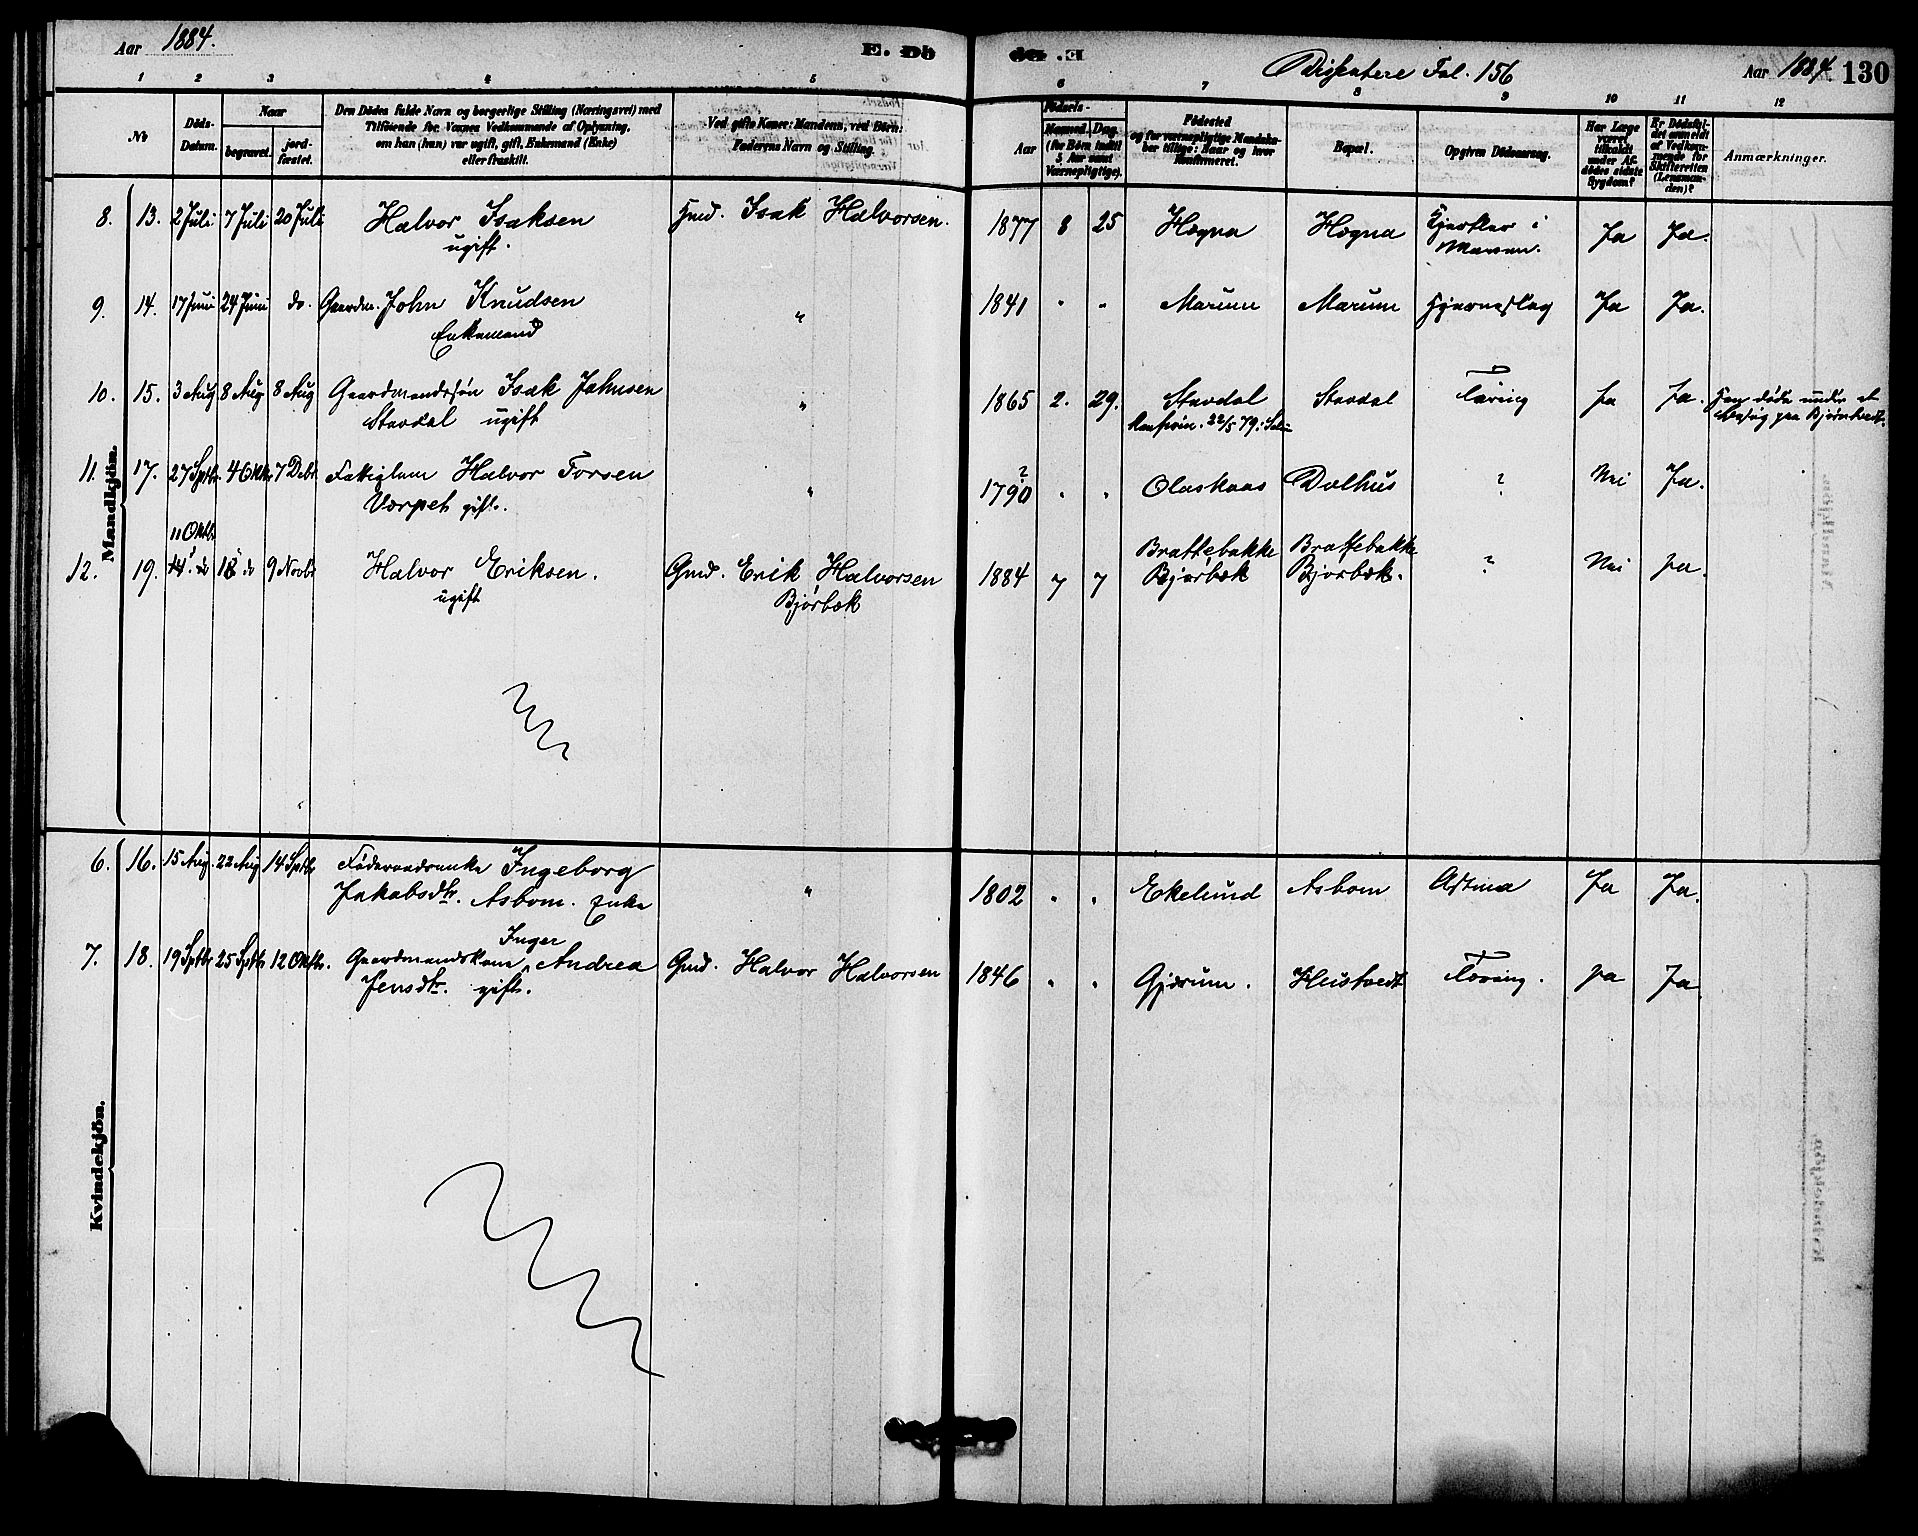 Aar 1884. E. Dö
Dissentere Fol. 156 Aar 1884. 130
1 2 3 4 5 6 7 8 9 10 11 12
No
Döds-Datum.
Naar
begravet.
jord-fæstet.
Den Dødes fulde Navn og borgerlige Stilling (Næringsvei) med
Tilföiende for Voxnes Vedkommende af Oplysning,
om han (hun) var ugift, gift, Enkemand (Enke)
eller fraskilt.
Ved gifte Koner: Mandens, ved Börn:
Faderens Navn og Stilling.
Födsels-
Aar
Maaned. Dag.
(for Börn indtil
5 Aar samt
Værnepligtige).
Födested
og for værnepligtige Mandska-
ber tillige: Naar og hvor
konfirmeret.
Bopæl.
Opgiven Dödsaarsag.
Har Læge
været
tilkaldt
under Af-
dödes sidste
Sygdom?
Er Dödsfal-
det anmeldt
af Vedkom-
mende for
Skifteretten
(Lensman-
den)?
Anmærkninger.
Mandkjön.
8. 13. 2 Juli 7 Juli 20 Juli Halvor Isaksen Gmd. Isak Halvorsen. 1877 8 25 Hogna Hogna i Ja Ja.
ugift.
9. 14. 17 Juni 24 Juni do. Gaardm. John Knudsen " 1841 " " Marum Marum Hjerneslag Ja Ja.
Enkemand
10. 15. 3 Aug 8 Aug 8 Aug Gaardmandssøn Isak Johnsen " 1865 2. 29. Stavdal Stavdal Tæring Ja Ja. Han døde under et
Stavdal ugift Konfirm. 22/5 79 i Besøg paa Bjørntvedt.
11. 17. 27 Septbr. 4 Oktbr 7 Debr Fattiglem Halvor Torsen " 1790 ? " " Olaskaas Dalhus ? Nei Ja.
Værpet gift.
12. 19. 11 Oktbr 14 do 18 do 9 Novbr Halvor Eriksen. Gmd. Erik Halvorsen 1884 7 7 Brattebakke Brattebakke ? Nei Ja.
ugift Bjørbæk Bjørbæk Bjørbæk.
Kvindekjön.
6. 16. 15 Aug. 22 Aug 14 Septbr Føderaadsenke Ingeborg " 1802 " " Ekelund Asbom Astma Ja Ja.
Jakobsdtr. Asbom. Enke
7. 18. 19 Septbr 25 Septbr 12 Oktbr. Gaardmandskone Inger Andrea Gmd. Halvor Halvorsen 1846 " " Gjærum. Heistvedt Tæring. Ja Ja.
Jensdtr. gift.